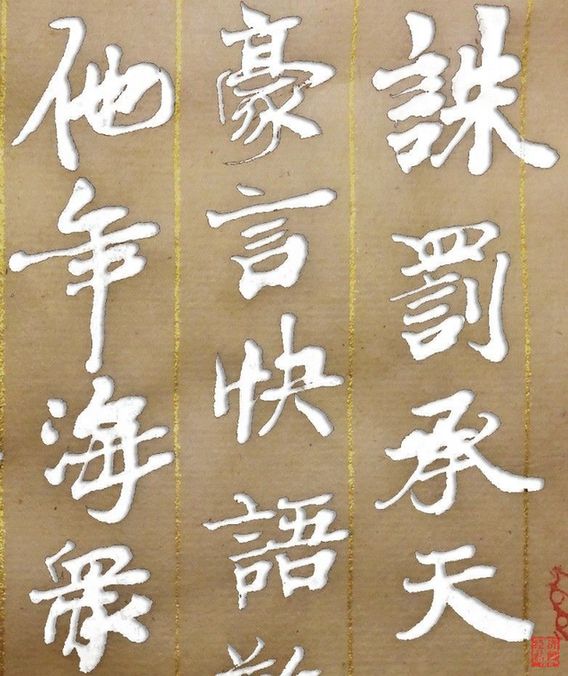 誅罰承天
豪言快語
他年海眾